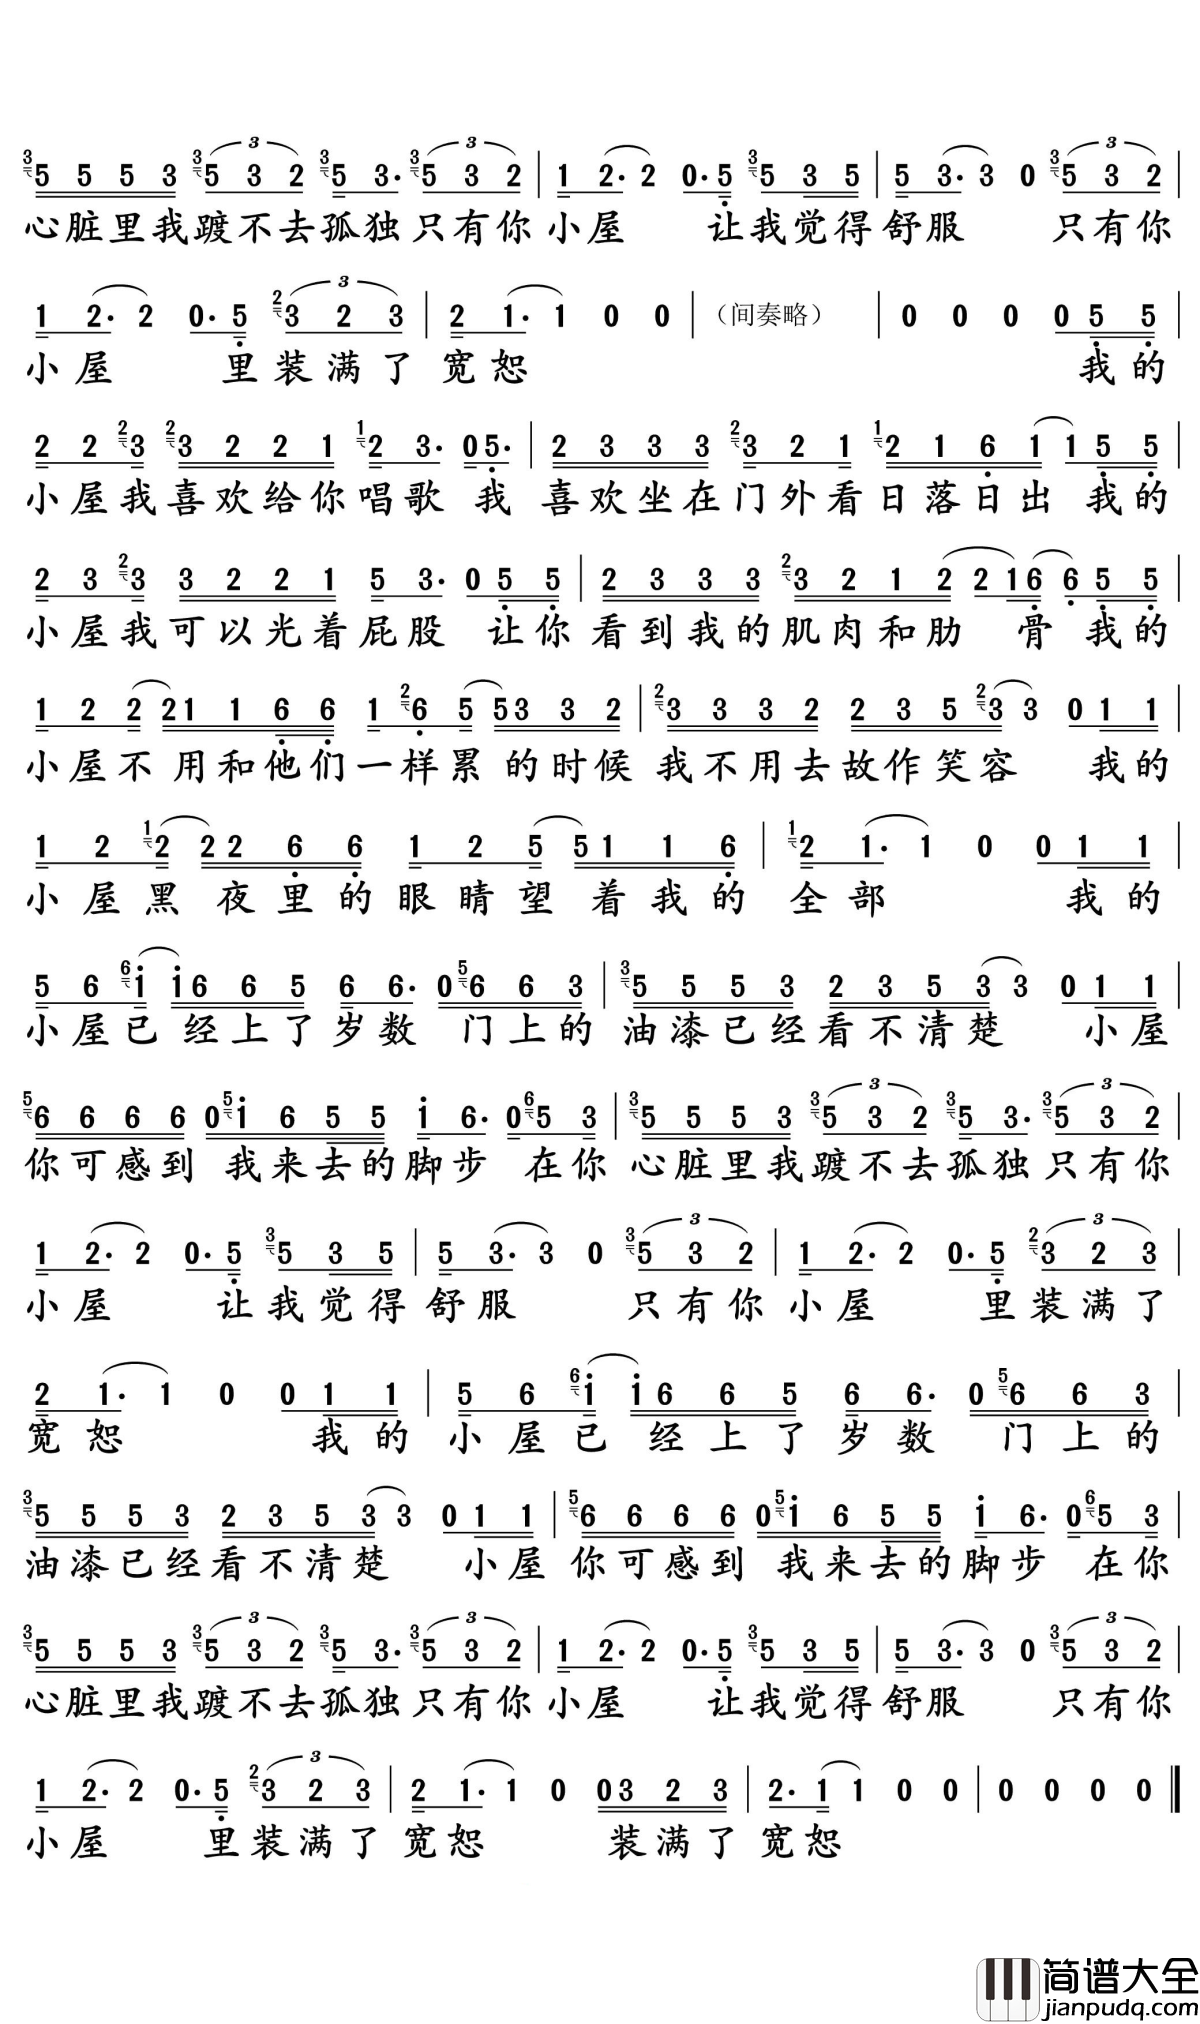 3 5 5 5 3 3 5 3 2 3 5 3· 3 5 3 2 | 1 2· 2 0· 5 3 5 3 5 | 5 3· 3 0 3 5 3 2 |
心脏里我踱不去孤独只有你小屋 让我觉得舒服 只有你
1 2· 2 0· 5 2 3 2 3 | 2 1· 1 0 0 | （间奏略） | 0 0 0 0 5 5 |
小屋 里装满了宽恕 我的
2 2 2 3 2 3 2 2 1 1 2 3· 0 5· | 2 3 3 3 2 3 2 1 1 2 1 6 1 1 5 5 |
小屋我喜欢给你唱歌 我 喜欢坐在门外看日落日出 我的
2 3 2 3 3 2 2 1 5 3· 0 5 5 | 2 3 3 3 2 3 2 1 2 2 1 6 6 5 5 |
小屋我可以光着屁股 让你看到我的肌肉和肋 骨 我的
1 2 2 2 1 1 6 6 1 2 6 5 5 3 3 2 | 2 3 3 3 2 2 3 5 2 3 3 0 1 1 |
小屋不 用和他们一样累 的时候 我不用去故作笑容 我的
1 2 1 2 2 2 6 6 1 2 5 5 1 1 6 | 1 2 1· 1 0 0 1 1 |
小屋黑 夜里的眼睛望 着我的 全部 我的
5 6 6 i i 6 6 5 6 6· 0 5 6 6 3 | 3 5 5 5 3 2 3 5 3 3 0 1 1 |
小屋已 经上了岁数 门上的 油漆已经看不清楚 小屋
5 6 6 6 6 0 5 i 6 5 5 i 6· 0 6 5 3 | 3 5 5 5 3 3 5 3 2 3 5 3· 3 5 3 2 |
你可感到 我来去的脚步 在你 心脏里我踱不去孤独只有你
1 2· 2 0· 5 3 5 3 5 | 5 3· 3 0 3 5 3 2 | 1 2· 2 0· 5 2 3 2 3 |
小屋 让我觉得舒服 只有你小屋 里装满了
2 1· 1 0 0 1 1 | 5 6 6 i i 6 6 5 6 6· 0 5 6 6 3 |
宽恕 我的 小屋已 经上了岁数 门上的
3 5 5 5 3 2 3 5 3 3 0 1 1 | 5 6 6 6 6 0 5 i 6 5 5 i 6· 0 6 5 3 |
油漆已经看不清楚 小屋 你可感到 我来去的脚步 在你
3 5 5 5 3 3 5 3 2 3 5 3· 3 5 3 2 | 1 2· 2 0· 5 3 5 3 5 | 5 3· 3 0 3 5 3 2 |
心脏里我踱不去孤独只有你小屋 让我觉得舒服 只有你
1 2· 2 0· 5 2 3 2 3 | 2 1· 1 0 0 3 2 3 | 2· 1 1 0 0 | 0 0 0 0 ‖
小屋 里装满了宽恕 装满了宽恕
简谱大全
jianpudq.com